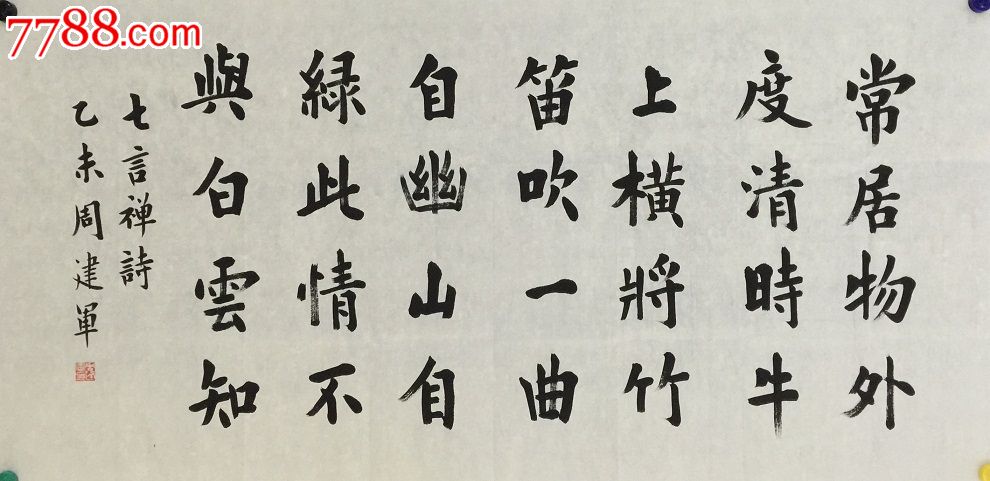 7788.com
常居物外
度清時牛
上橫將竹
笛吹一曲
自幽山自
緑此情不
與白雲知
七言禅詩
乙未周建軍